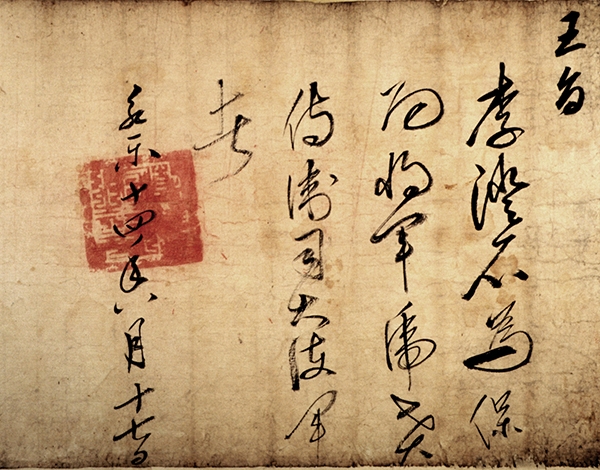 王旨
李澄石為保
功將軍虎
侍衛司大護軍
者
永樂十四年八月十七日